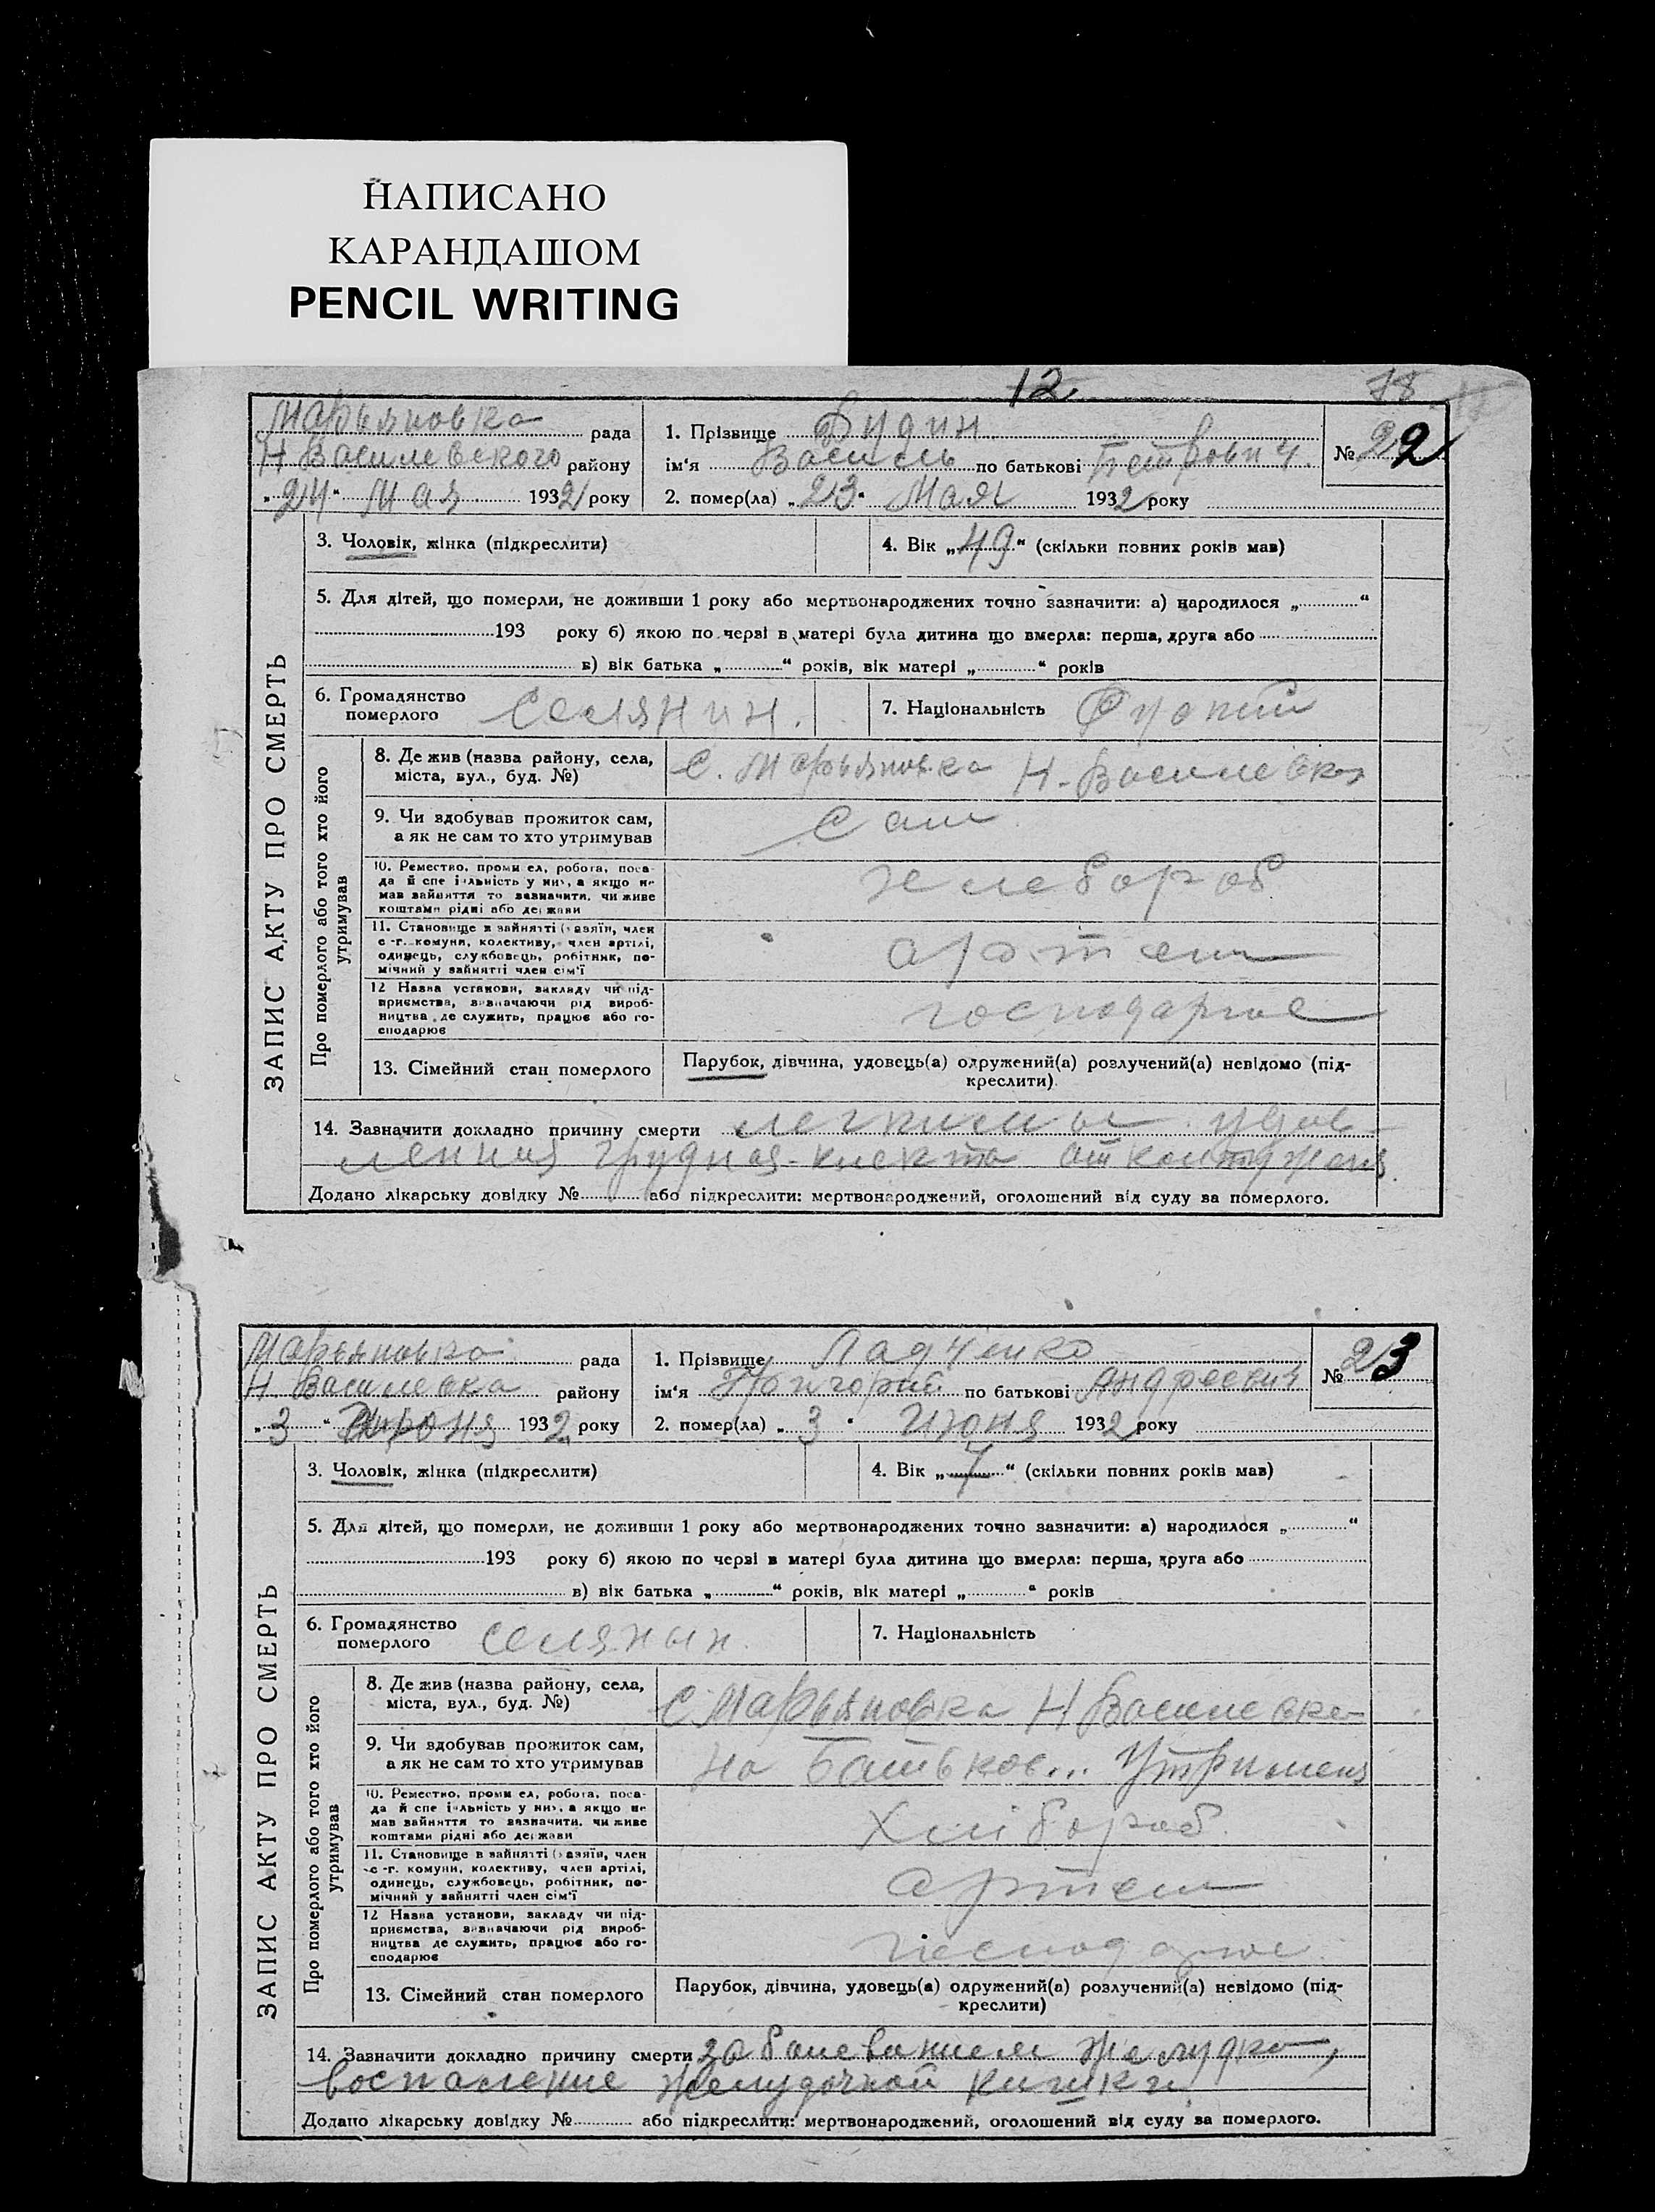 НАПИСАНО
КАРАНДАШОМ
PENCIL WRITING
12. 78
Марьяновка рада
Н Василевского району
„24“ Мая 1932 року
1. Прізвище Будин.
ім'я Василь по батькові Петрович.
2. помер(ла) „23“ Мая 1932 року
№ 22
ЗАПИС АКТУ ПРО СМЕРТЬ
3. Чоловік, жінка (підкреслити)
4. Вік „49“ (скільки повних років мав)
5. Для дітей, що померли, не доживши 1 року або мертвонароджених точно зазначити: а) народилося „ “
193 року б) якою по черзі в матері була дитина що вмерла: перша, друга або
в) вік батька „ “ років, вік матері „ “ років
6. Громадянство
померлого селянин.
7. Національність
Про померлого або того хто його
утримував
8. Де жив (назва району, села,
міста, вул., буд. №)
С. Марьяновка Н-Василевка
9. Чи здобував прожиток сам,
а як не сам то хто утримував
Сам
10. Ремество, промисел, робота, поса-
да й спеціяльність у них, а якщо не
мав зайняття то зазначити, чи живе
коштами рідні або держави
хлебороб
11. Становище в зайнятті (хазяїн, член
с.-г. комуни, колективу, член артілі,
одинець, службовець, робітник, по-
мічний у зайнятті член сім'ї
артель
12 Назва установи, закладу чи під-
приємства, зазначаючи рід вироб-
ництва де служить, працює або го-
сподарює
господарює
13. Сімейний стан померлого
Парубок, дівчина, удовець(а) одружений(а) розлучений(а) невідомо (під-
креслити)
14. Зазначити докладно причину смерти
грудная клекта
Додано лікарську довідку № або підкреслити: мертвонароджений, оголошений від суду за померлого.
Марьяновка рада
Н Василевка району
„3“ Июня 1932 року
1. Прізвище Ладченко
ім'я Григорий по батькові Андреевич
2. помер(ла) „3“ Июня 1932 року
№ 23
ЗАПИС АКТУ ПРО СМЕРТЬ
3. Чоловік, жінка (підкреслити)
4. Вік „7“ (скільки повних років мав)
5. Для дітей, що померли, не доживши 1 року або мертвонароджених точно зазначити: а) народилося „ “
193 року б) якою по черзі в матері була дитина що вмерла: перша, друга або
в) вік батька „ “ років, вік матері „ “ років
6. Громадянство
померлого селянын.
7. Національність
Про померлого або того хто його
утримував
8. Де жив (назва району, села,
міста, вул., буд. №)
С Марьяновка Н Василевка
9. Чи здобував прожиток сам,
а як не сам то хто утримував
на Батьков... Утриманя
10. Ремество, промисел, робота, поса-
да й спеціяльність у них, а якщо не
мав зайняття то зазначити, чи живе
коштами рідні або держави
Хлібороб
11. Становище в зайнятті (хазяїн, член
с.-г. комуни, колективу, член артілі,
одинець, службовець, робітник, по-
мічний у зайнятті член сім'ї
артель
12 Назва установи, закладу чи під-
приємства, зазначаючи рід вироб-
ництва де служить, працює або го-
сподарює
господарює
13. Сімейний стан померлого
Парубок, дівчина, удовець(а) одружений(а) розлучений(а) невідомо (під-
креслити)
14. Зазначити докладно причину смерти заболеванием желудка,
воспаление желудочной кишки
Додано лікарську довідку № або підкреслити: мертвонароджений, оголошений від суду за померлого.